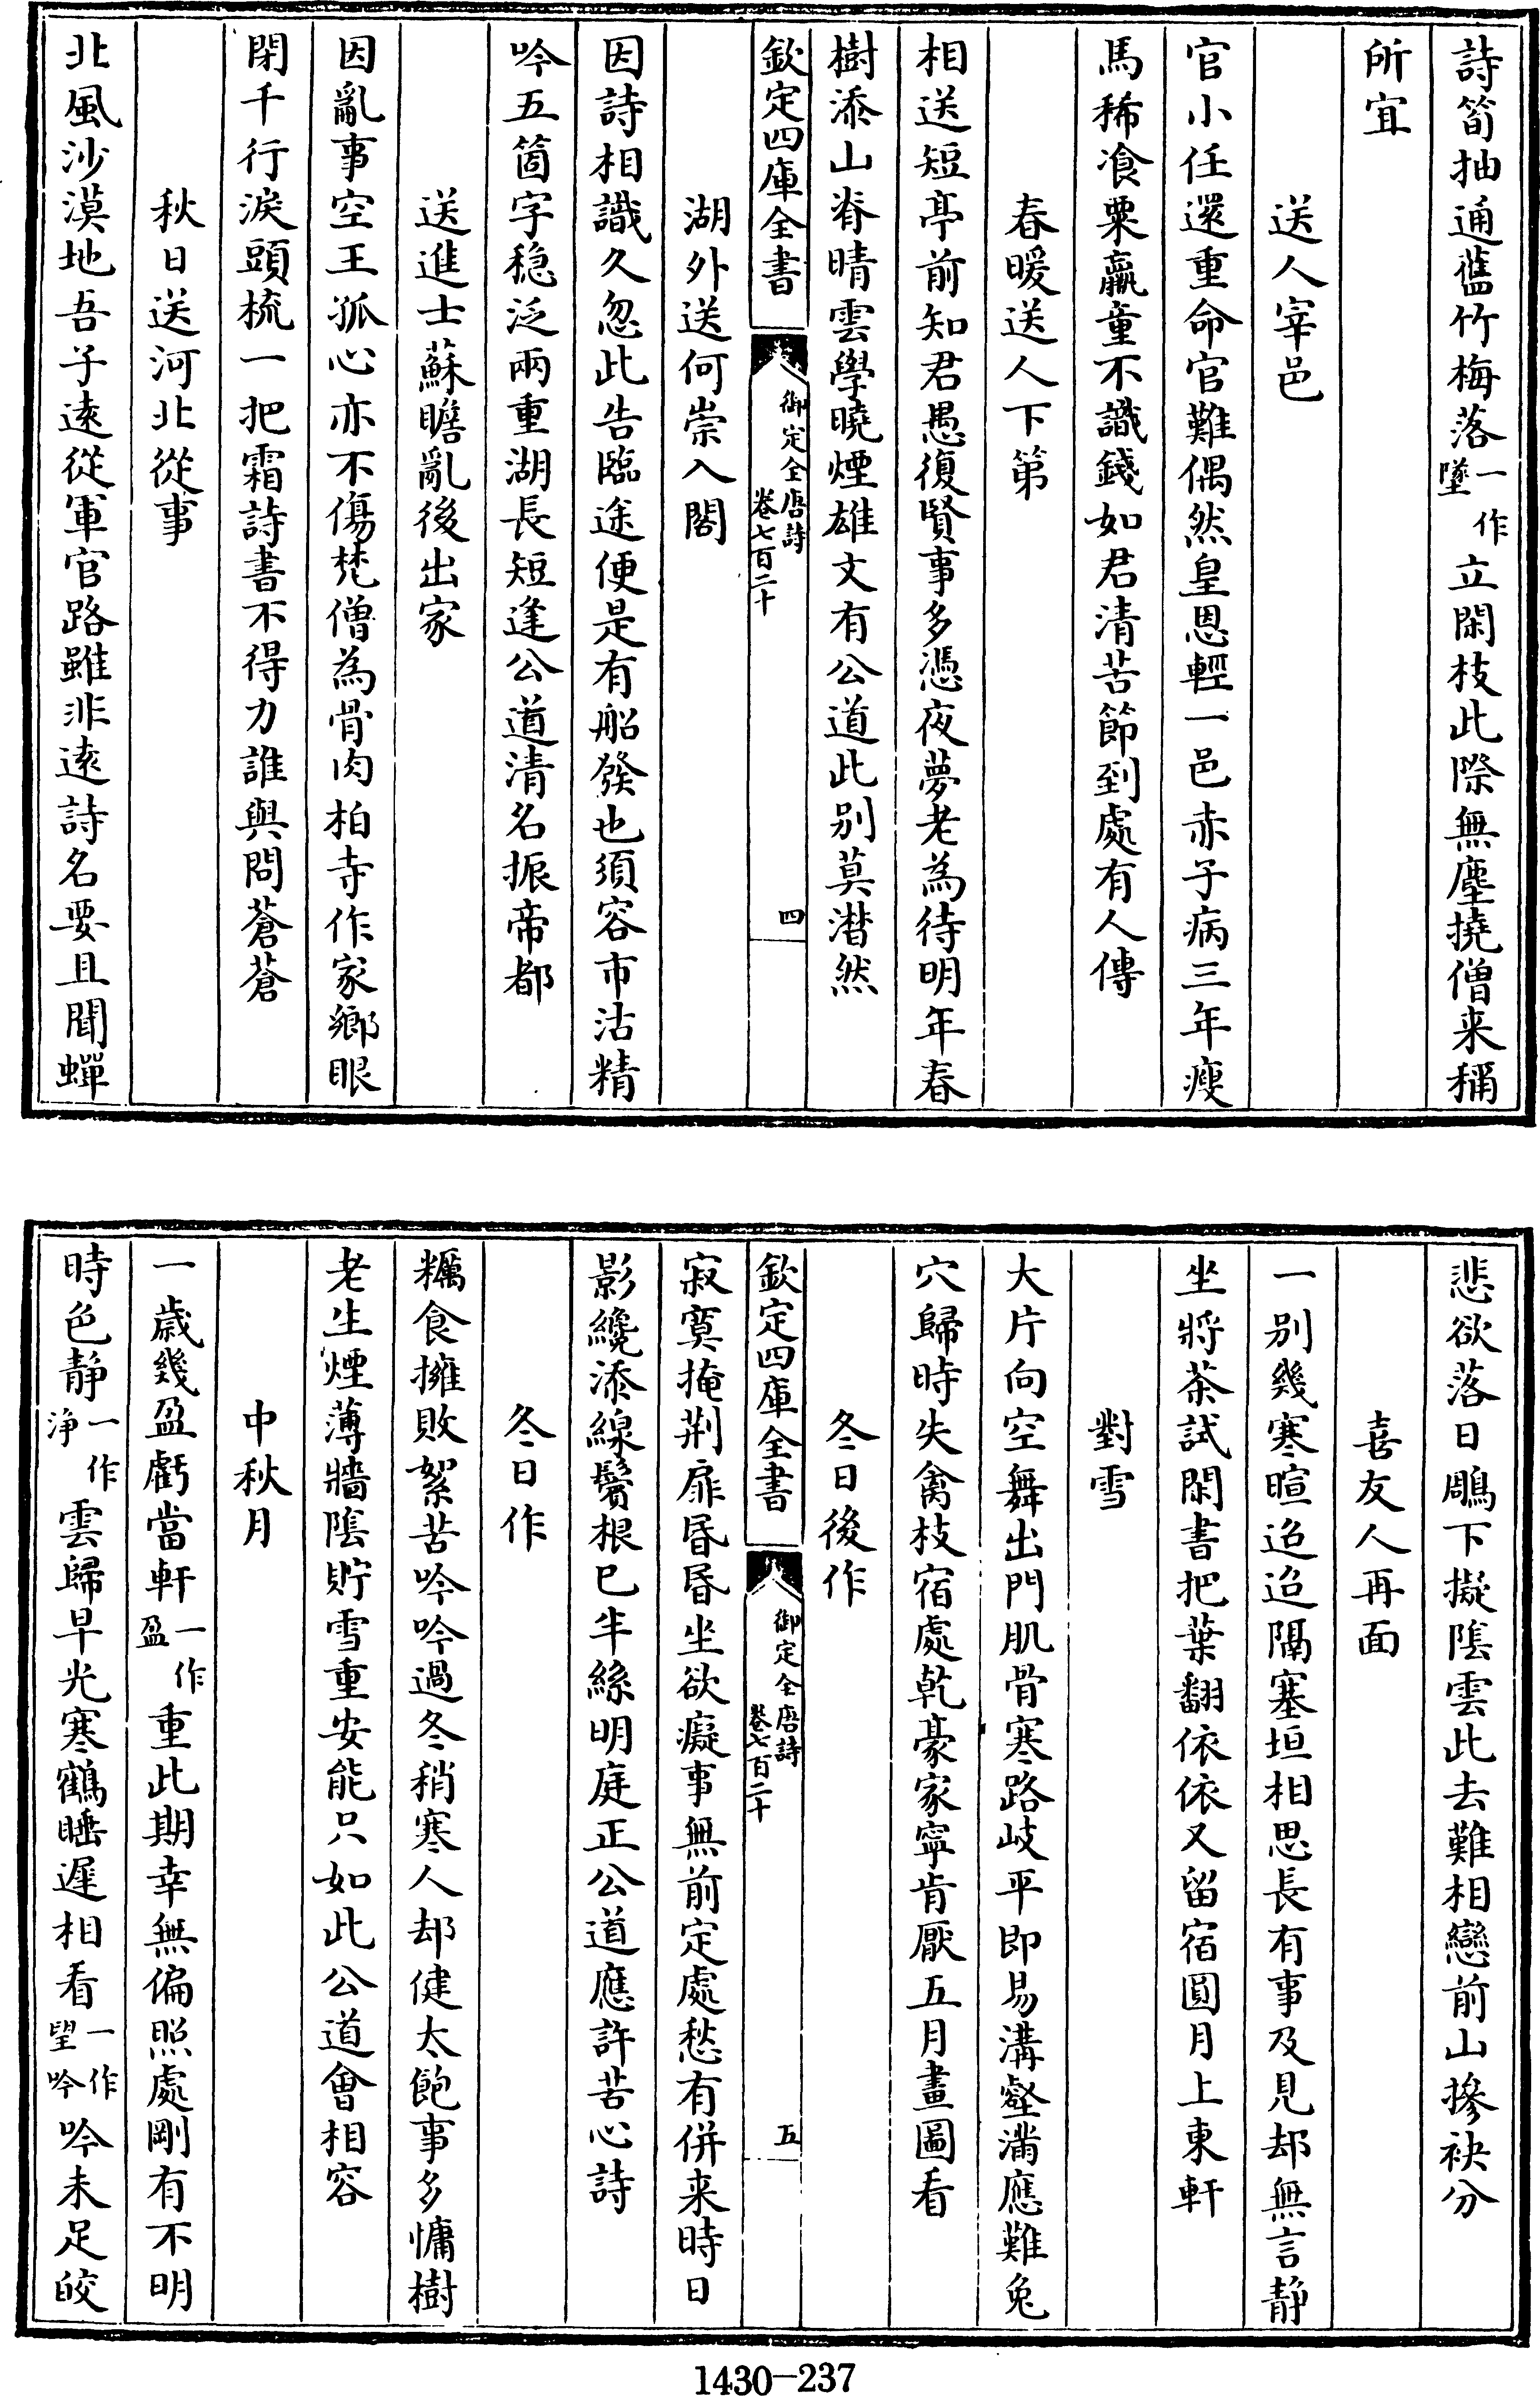 詩筍抽通舊竹梅落一作墜立閑枝此際無塵撓僧来稱
所宜
送人宰邑
官小任還重命官難偶然皇恩輕一邑赤子病三年瘦
馬稀飡粟羸童不識錢如君清苦節到處有人傳
春暖送人下第
相送短亭前知君愚復賢事多憑夜夢老為待明年春
樹添山脊晴雲學曉煙雄文有公道此别莫潸然
欽定四庫全書
御定全唐詩
卷七百二十
四
湖外送何崇入閣
因詩相識久忽此告臨途便是有船發也須容市沽精
吟五箇字穏泛兩重湖長短逢公道清名振帝都
送進士蘇瞻亂後出家
因亂事空王孤心亦不傷梵僧為骨肉柏寺作家鄉眼
閉千行淚頭梳一把霜詩書不得力誰與問蒼蒼
秋日送河北從事
北風沙漠地吾子逺從軍官路雖非逺詩名要且聞蟬
悲欲落日鵰下擬隂雲此去難相戀前山摻袂分
喜友人再面
一别幾寒暄迢迢隔塞垣相思長有事及見却無言静
坐將茶試閑書把葉翻依依又留宿圓月上東軒
對雪
大片向空舞出門肌骨寒路岐平即易溝壑滿應難兔
穴歸時失禽枝宿處乾豪家寧肯厭五月畫圖看
冬日後作
欽定四庫全書
御定全唐詩
卷七百二十
五
寂寞掩荆扉昏昏坐欲癡事無前定處愁有併来時日
影纔添線鬢根已半絲明庭正公道應許苦心詩
冬日作
糲食擁敗絮苦吟吟過冬稍寒人却健太飽事多慵樹
老生煙薄牆隂貯雪重安能只如此公道㑹相容
中秋月
一歲幾盈虧當軒一作盈重此期幸無偏照處剛有不明
時色静一作浄雲歸早光寒鶴睡遲相看一作望吟吟未足皎
1430-237